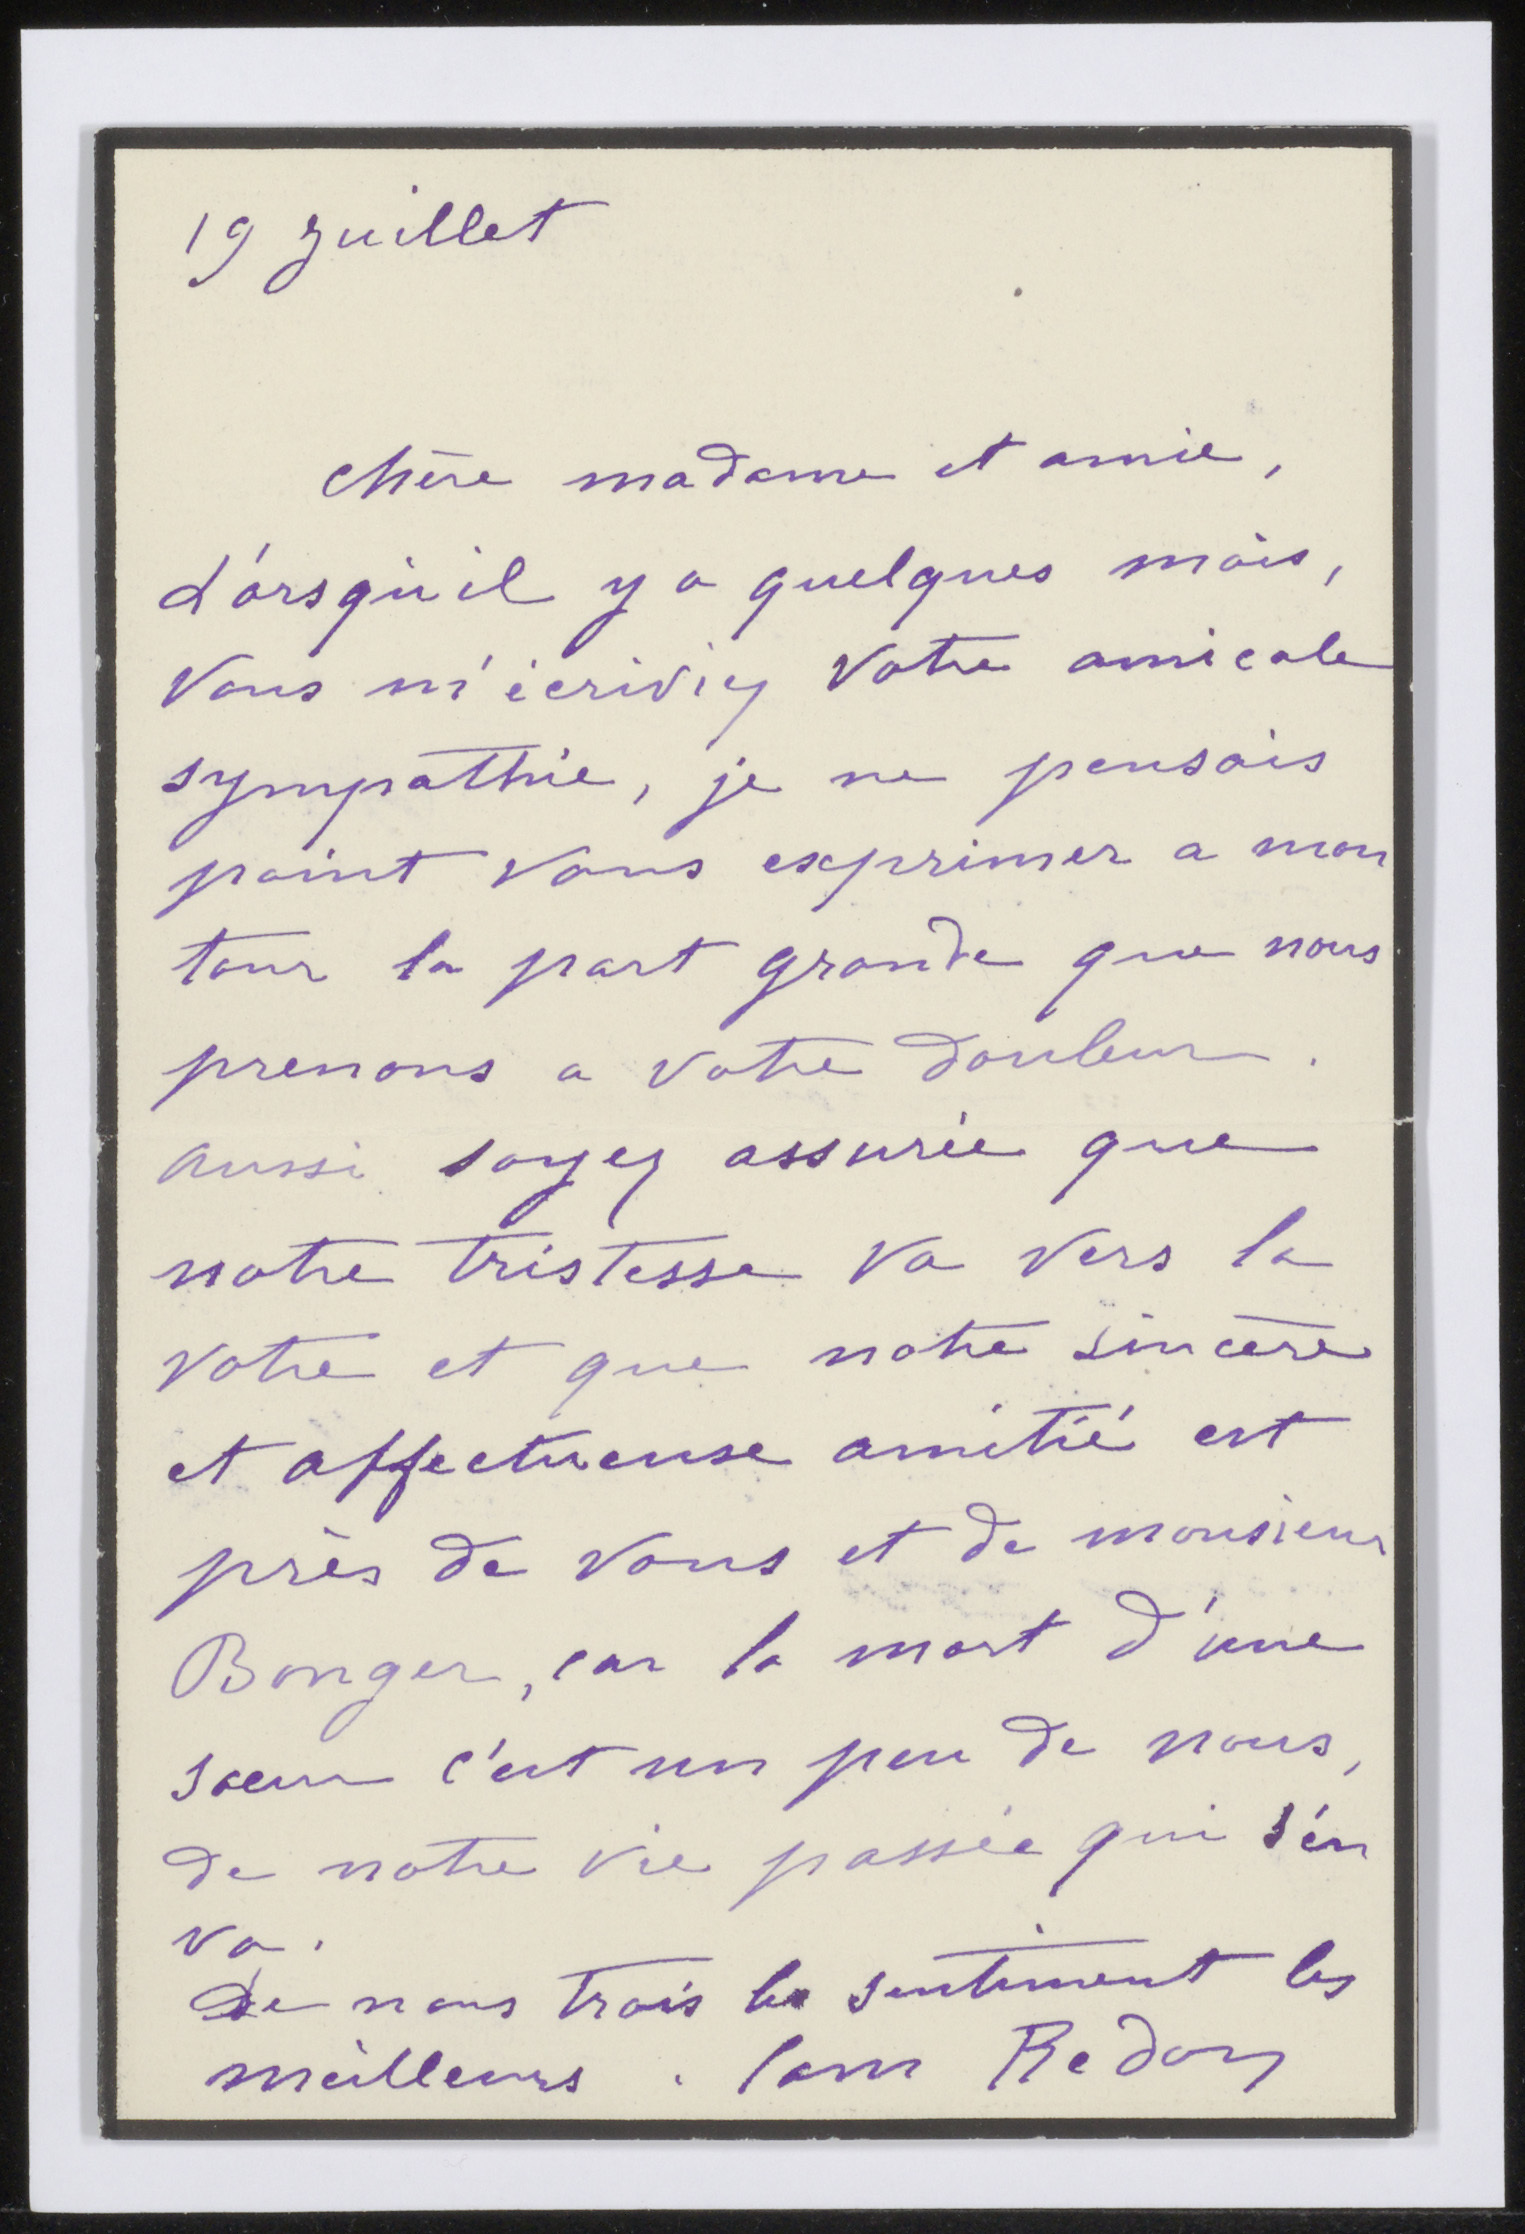 19 juillet
chère madame et amie,
Lorsqu'il y a quelques mois,
vous m'écriviez votre amicale
sympathie, je ne pensais
point vous exprimer a mon
tour la part grande que nous
prenons a votre douleur.
aussi soyez assurée que
notre tristesse va vers la
votre et que notre sincère
et affectueuse amitié est
près de vous et de monsieur
Bonger, car la mort d'une
soeur c'est un peu de nous,
de notre vie passée qui s'en
va.
De nous trois les sentiment les
meilleurs. Cam Redon